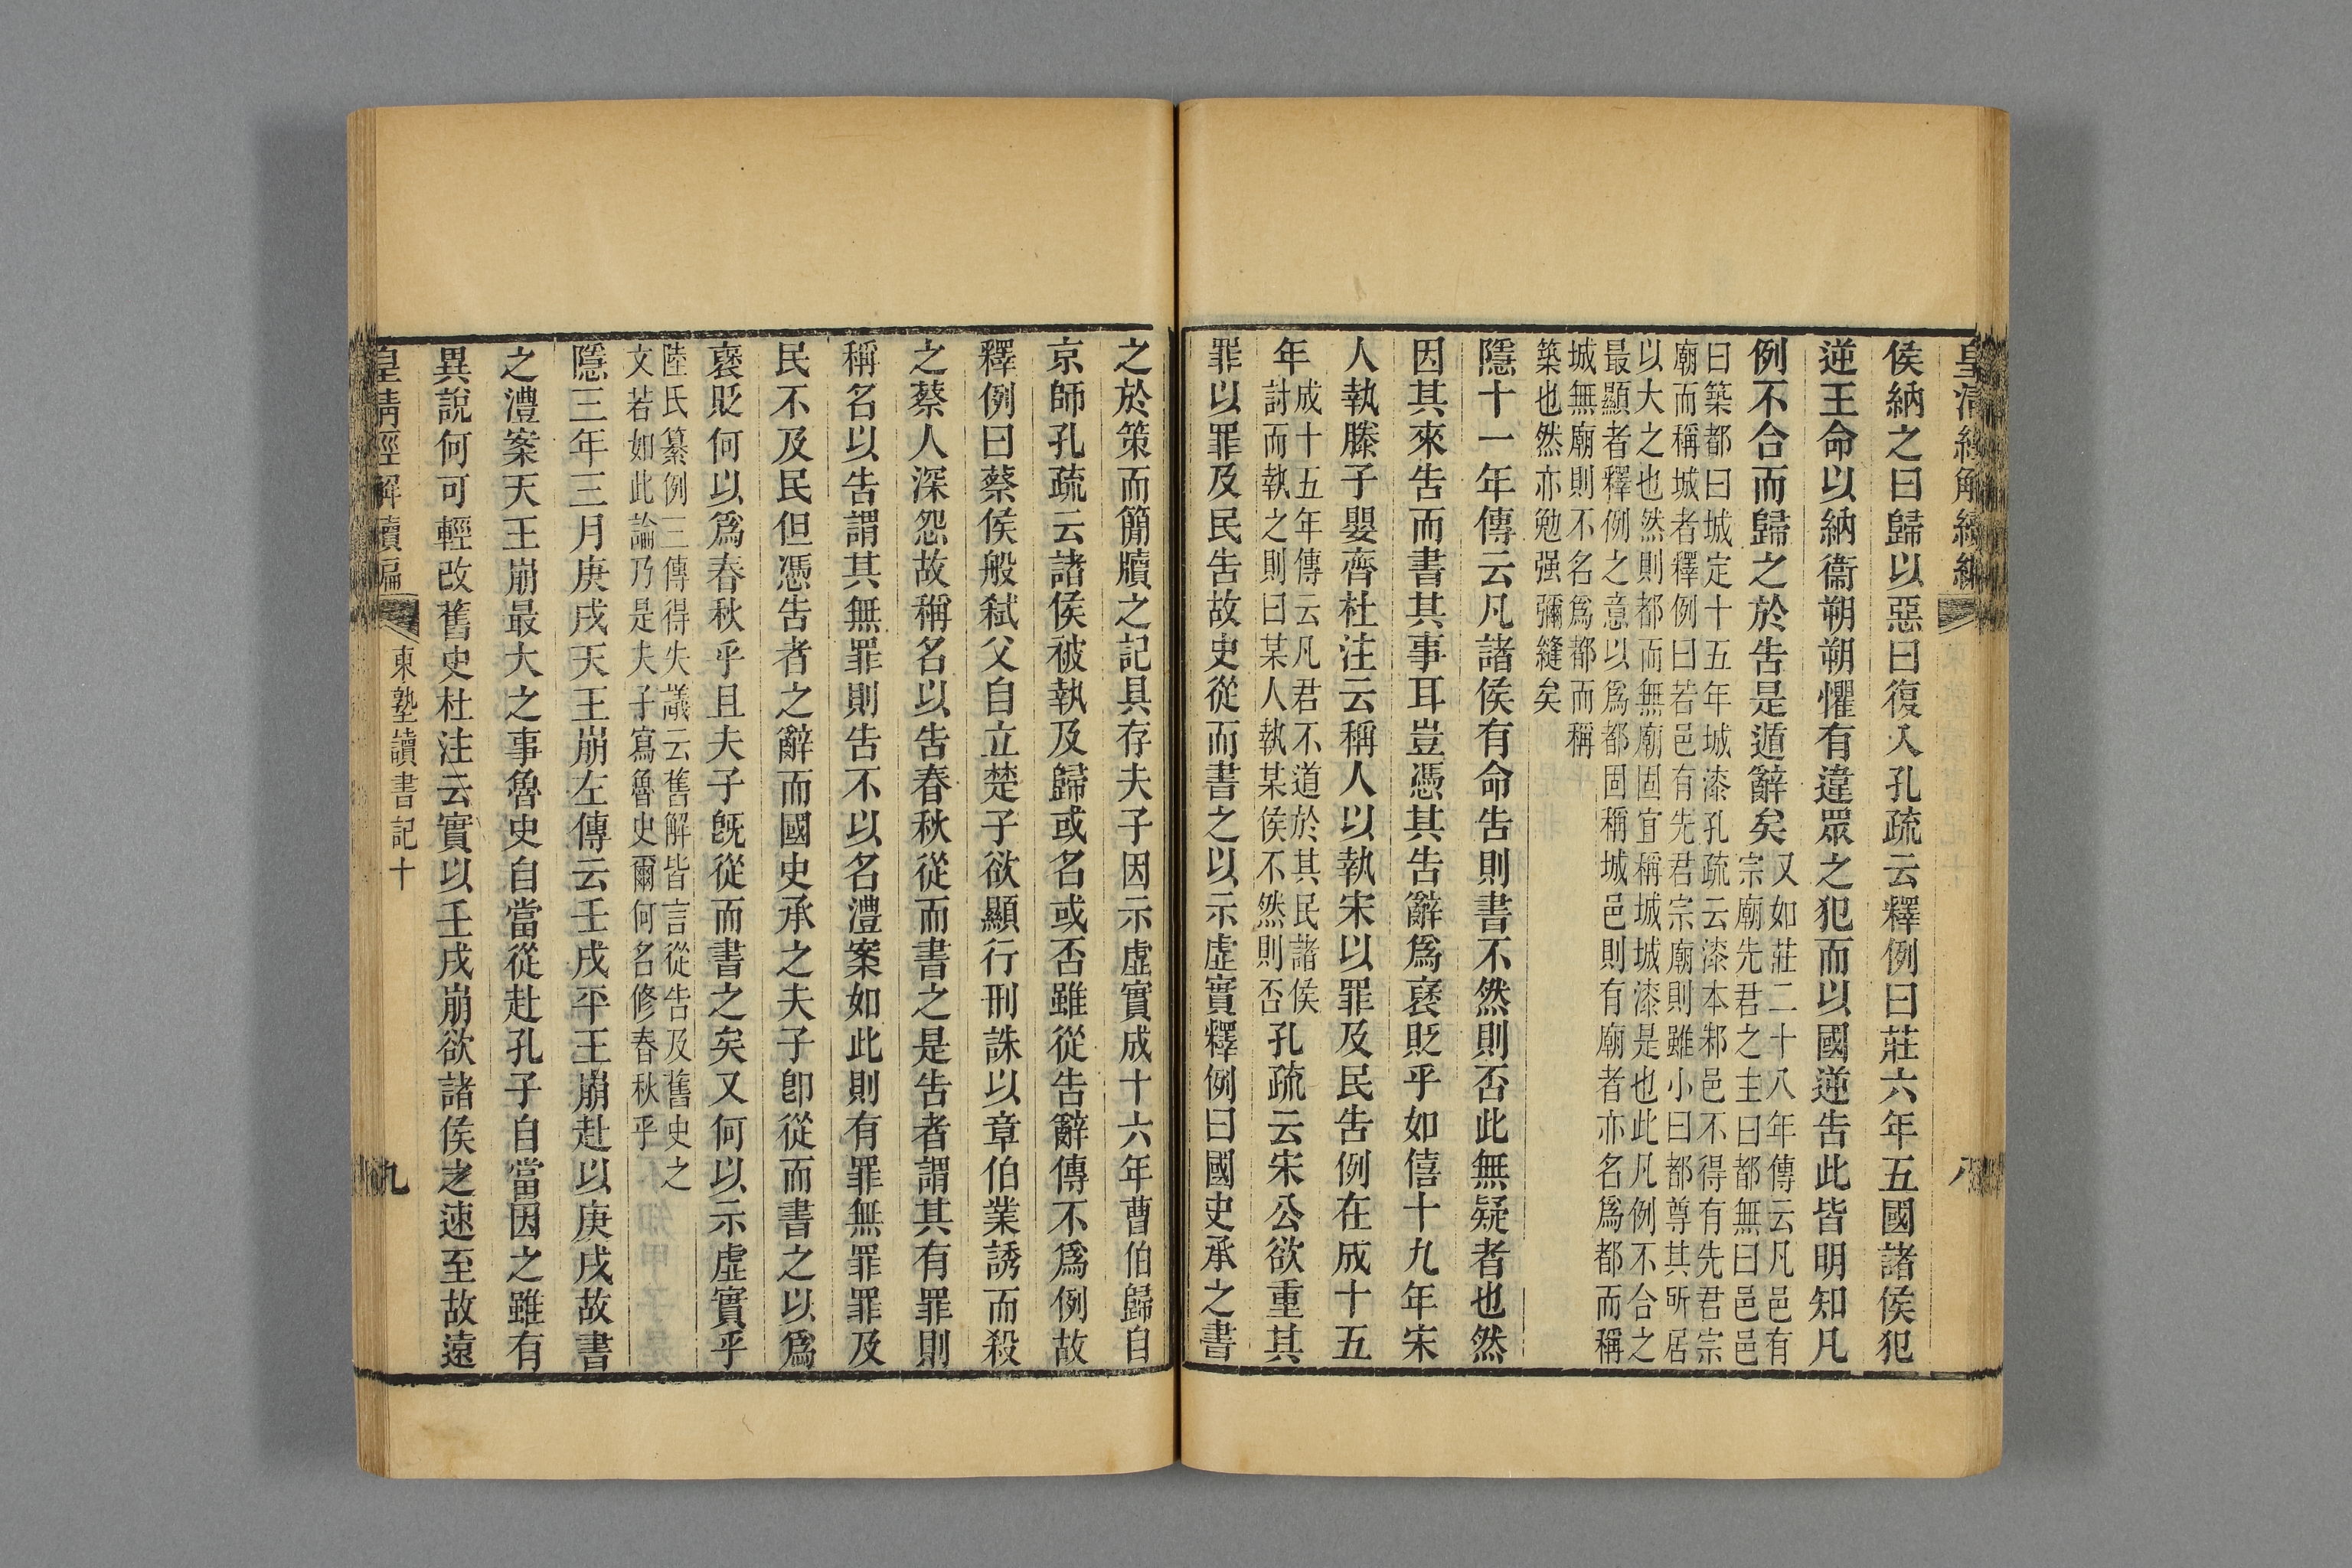 皇清經解續編
八
侯納之曰歸以惡曰復入孔疏云釋例曰莊六年五國諸侯犯
逆王命以納衞朔朔懼有違眾之犯而以國逆告此皆明知凡
例不合而歸之於告是遁辭矣
又如莊二十八年傳云凡邑有
宗廟先君之主曰都無曰邑邑
曰築都曰城定十五年城漆孔疏云漆本邾邑不得有先君宗
廟而稱城者釋例曰若邑有先君宗廟則雖小曰都尊其所居
以大之也然則都而無廟固宜稱城城漆是也此凡例不合之
最顯者釋例之意以爲都固稱城邑則有廟者亦名爲都而稱
城無廟則不名爲都而稱
築也然亦勉强彌縫矣
隱十一年傳云凡諸侯有命告則書不然則否此無疑者也然
因其來告而書其事耳豈憑其告辭爲襃貶乎如僖十九年宋
人執滕子嬰齊杜注云稱人以執宋以罪及民告例在成十五
年
成十五年傳云凡君不道於其民諸侯
討而執之則曰某人執某侯不然則否
孔疏云宋公欲重其
罪以罪及民告故史從而書之以示虛實釋例曰國史承之書
之於策而簡牘之記具存夫子因示虛實成十六年曹伯歸自
京師孔疏云諸侯被執及歸或名或否雖從告辭傳不爲例故
釋例曰蔡侯般弒父自立楚子欲顯行刑誅以章伯業誘而殺
之蔡人深怨故稱名以告春秋從而書之是告者謂其有罪則
稱名以告謂其無罪則告不以名澧案如此則有罪無罪罪及
民不及民但憑告者之辭而國史承之夫子卽從而書之以爲
襃貶何以爲春秋乎且夫子旣從而書之矣又何以示虛實乎
陸氏纂例三傳得失議云舊解皆言從告及舊史之
文若如此論乃是夫子寫魯史爾何名修春秋乎
隱三年三月庚戌天王崩左傳云壬戌平王崩赴以庚戌故書
之澧案天王崩最大之事魯史自當從赴孔子自當因之雖有
異說何可輕改舊史杜注云實以壬戌崩欲諸侯之速至故遠
皇清經解續編
東塾讀書記十
九